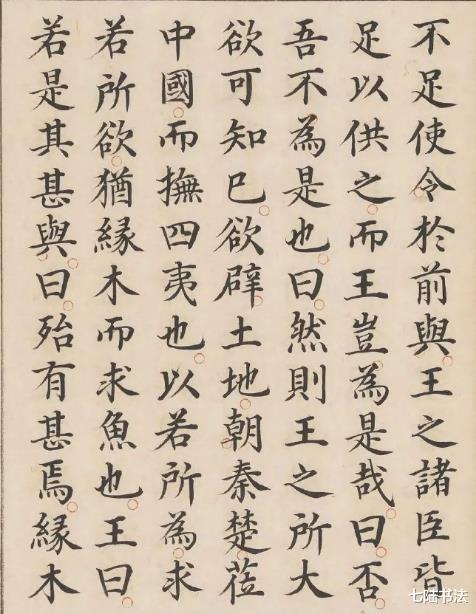 不足使令於前與王之諸臣皆
足以供之而王豈為是哉曰否
吾不為是也曰然則王之所大
欲可知已欲辟土地朝秦楚莅
中國而撫四夷也以若所為求
若所欲猶緣木而求魚也王曰
若是其甚與曰殆有甚焉緣木
七陆书法